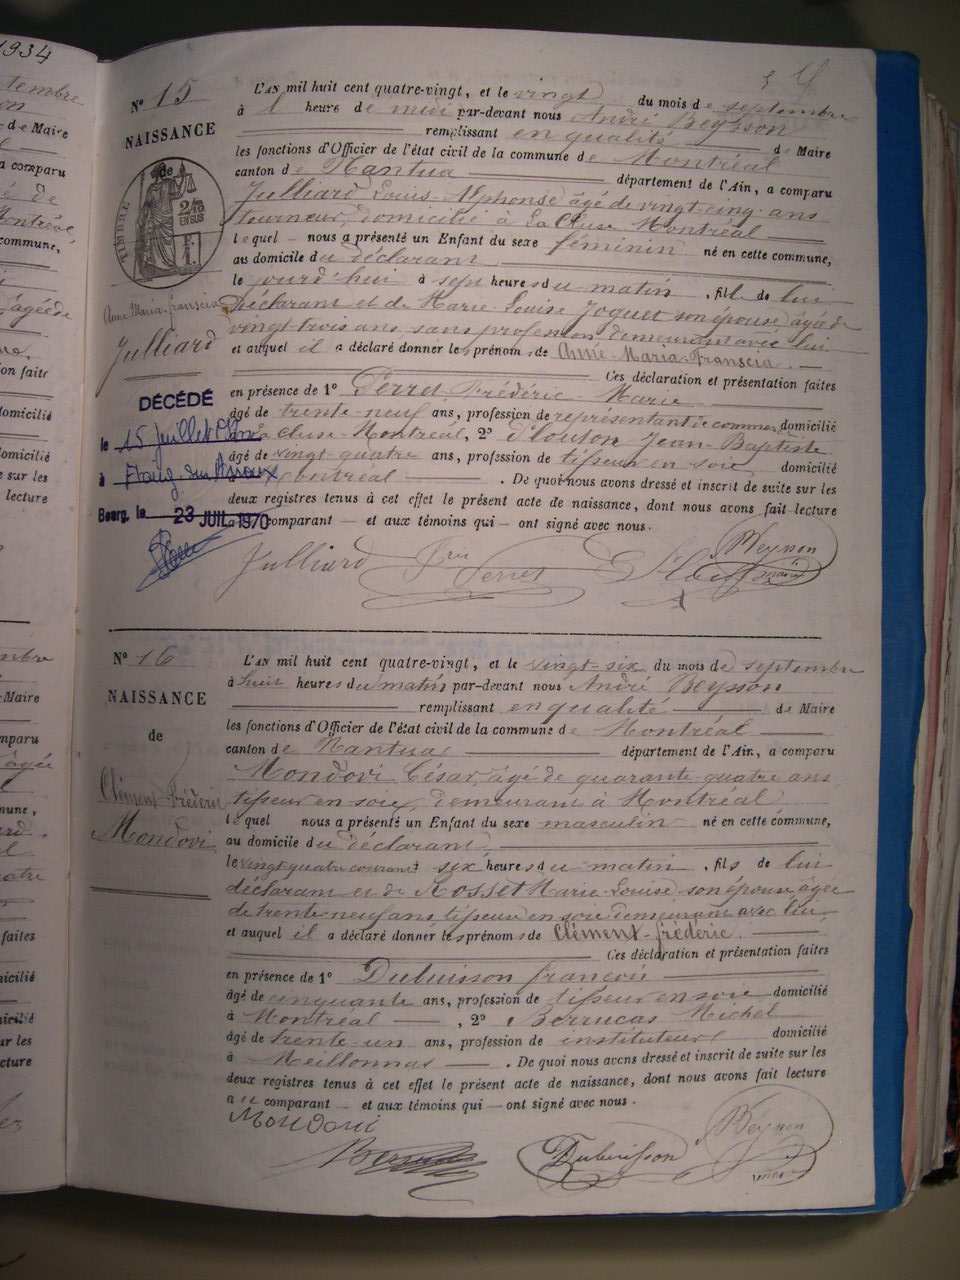 1934
N° 15
NAISSANCE
de
TIMBRE
Anne Maria-franscia
Julliard
DÉCÉDÉ
le 15 Juillet
à
Bourg, le 23 JUIL 1970
L'AN mil huit cent quatre-vingt, et le vingt du mois de septembre
à 1 heure de midi par-devant nous André Beysson
remplissant en qualité de Maire
les fonctions d'Officier de l'état civil de la commune de Montréal
canton de Nantua département de l'Ain, a comparu
Julliard Louis-Alphonse âgé de vingt-cinq ans
tourneur, domicilié à La Cluse Montréal
lequel nous a présenté un Enfant du sexe féminin né en cette commune,
au domicile du déclarant
le jourd'hui à sept heures du matin, fille de lui
déclarant et de Marie-Louise Joquet son épouse âgée de
vingt-trois ans sans profession demeurant avec lui
et auquel il a déclaré donner les prénoms de Anne-Maria-Franscia.
Ces déclaration et présentation faites
en présence de 1° Perret Frédéric-Marie
âgé de trente-neuf ans, profession de représentant de commerce domicilié
à Cluse-Montréal, 2° Jean-Baptiste
âgé de vingt-quatre ans, profession de tisseur en soie domicilié
Montréal. De quoi nous avons dressé et inscrit de suite sur les
deux registres tenus à cet effet le présent acte de naissance, dont nous avons fait lecture
au comparant et aux témoins qui ont signé avec nous.
Julliard Perret Beysson
maire
N° 16
NAISSANCE
de
Clément-Frédéric
Mondovi
L'AN mil huit cent quatre-vingt, et le vingt-six du mois de septembre
à huit heures du matin par-devant nous André Beysson
remplissant en qualité de Maire
les fonctions d'Officier de l'état civil de la commune de Montréal
canton de Nantua département de l'Ain, a comparu
Mondovi César, âgé de quarante-quatre ans
tisseur en soie, demeurant à Montréal
lequel nous a présenté un Enfant du sexe masculin né en cette commune,
au domicile du déclarant
le vingt-quatre courant à six heures du matin, fils de lui
déclarant et de Rosset Marie-Louise son épouse âgée
de trente-neuf ans tisseuse en soie demeurant avec lui
et auquel il a déclaré donner les prénoms de Clément-frédéric.
Ces déclaration et présentation faites
en présence de 1° Dubuisson françois
âgé de cinquante ans, profession de tisseur en soie domicilié
à Montréal, 2° Berrucas Michel
âgé de trente-un ans, profession de instituteur domicilié
à Meillonnas. De quoi nous avons dressé et inscrit de suite sur les
deux registres tenus à cet effet le présent acte de naissance, dont nous avons fait lecture
au comparant et aux témoins qui ont signé avec nous.
Mondovi
Dubuisson Beysson
maire